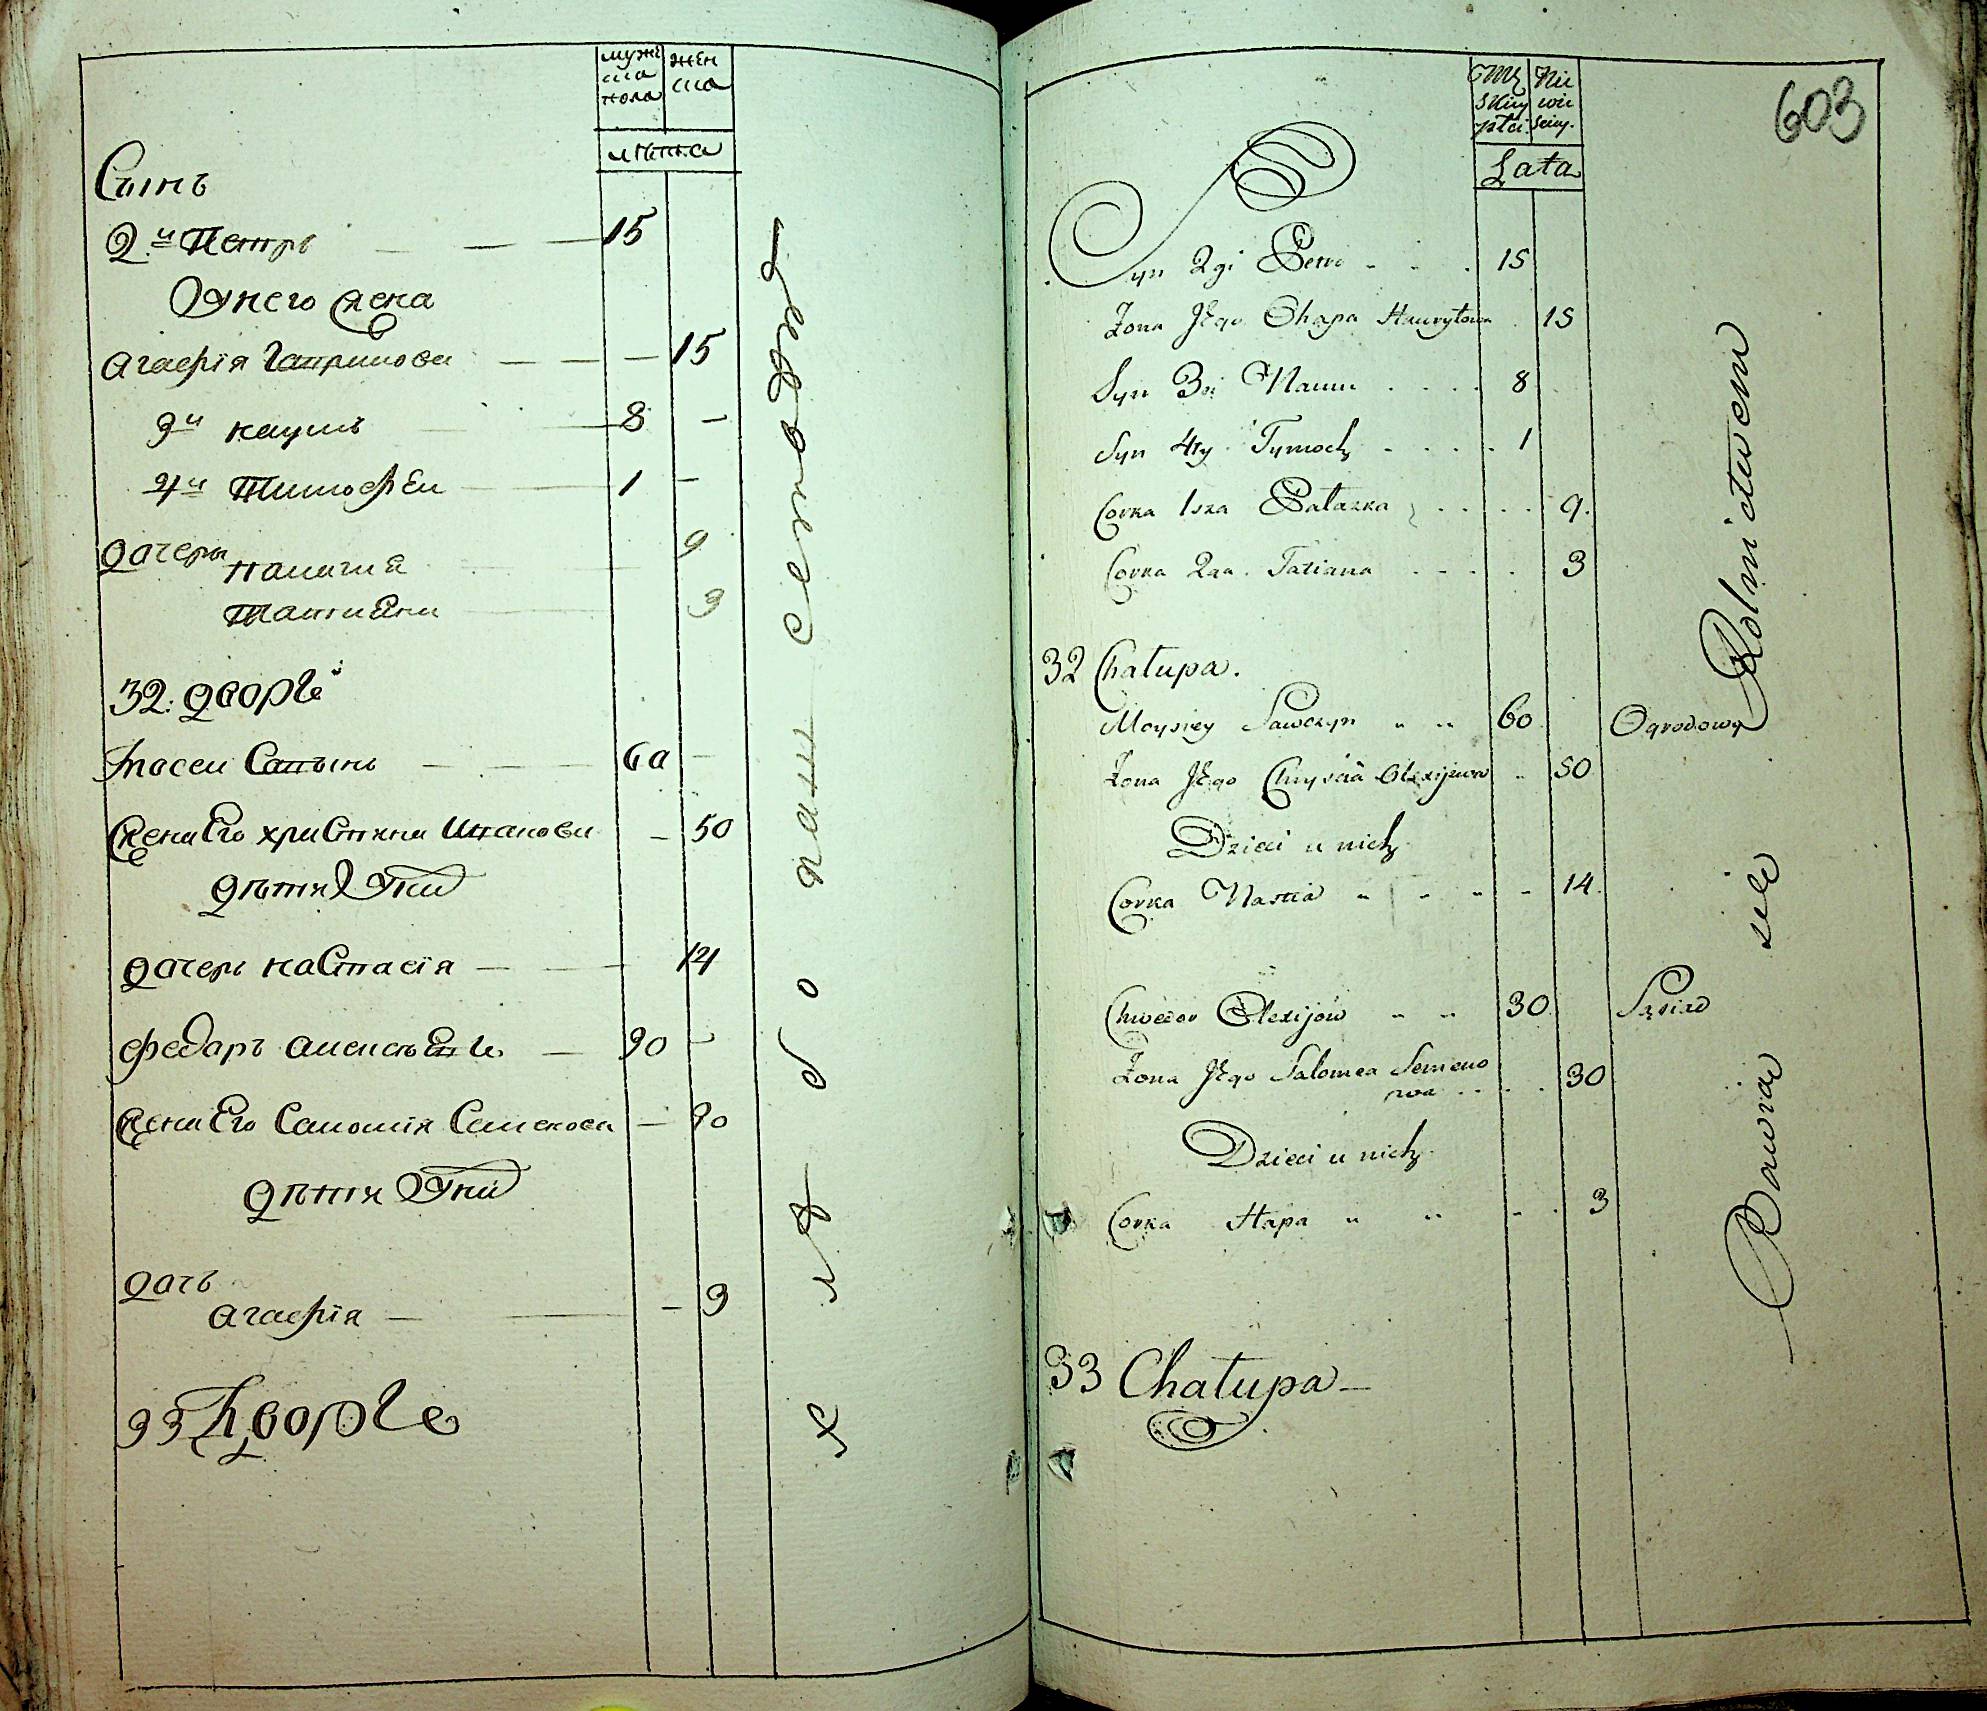 мужеска пола
женска
лѣтта
Сынъ
2й Петръ — — — 15
Унего жена
Агафія Гаврилова — — — 15
3й Наумъ — 8 —
4й Тимофѣи — 1 —
дочеры
Палагия 9
Татиана 3
32. дворъ
Мосеи Савынъ — — 60 —
Жена Его христина — 50
дѣти У ний
дочерь настасія — — 14
Федаръ Алексѣевъ — 30 —
жена Его Саломія Семенова — 30
дѣти У ний
дочь
агафія — — 3
33 Дворъ
603
Męzkiey płci
Niewieściey
Lata
Syn 2gi Petro 15
Żona Jego Ohapa Hawryłowa 15
Syn 3ci Naum 8
Syn 4ty Tymoch 1
Corka 1sza Pałazka 9.
Corka 2ga. Tatiana 3
32 Chałupa.
Moysiey Sawczyn " " 60 Ogrodowy
Żona Jego Chrystia Olexijowa " 50
Dzieci u nich
Corka Nastia " " " " 14.
Chwedor Olexijow " " 30 Sąsiad
Żona Jego Salomea Semenowa 30
Dzieci u nich
Corka Hapa " " " 3
33 Chałupa —
Bawiąc się Rolnictwem